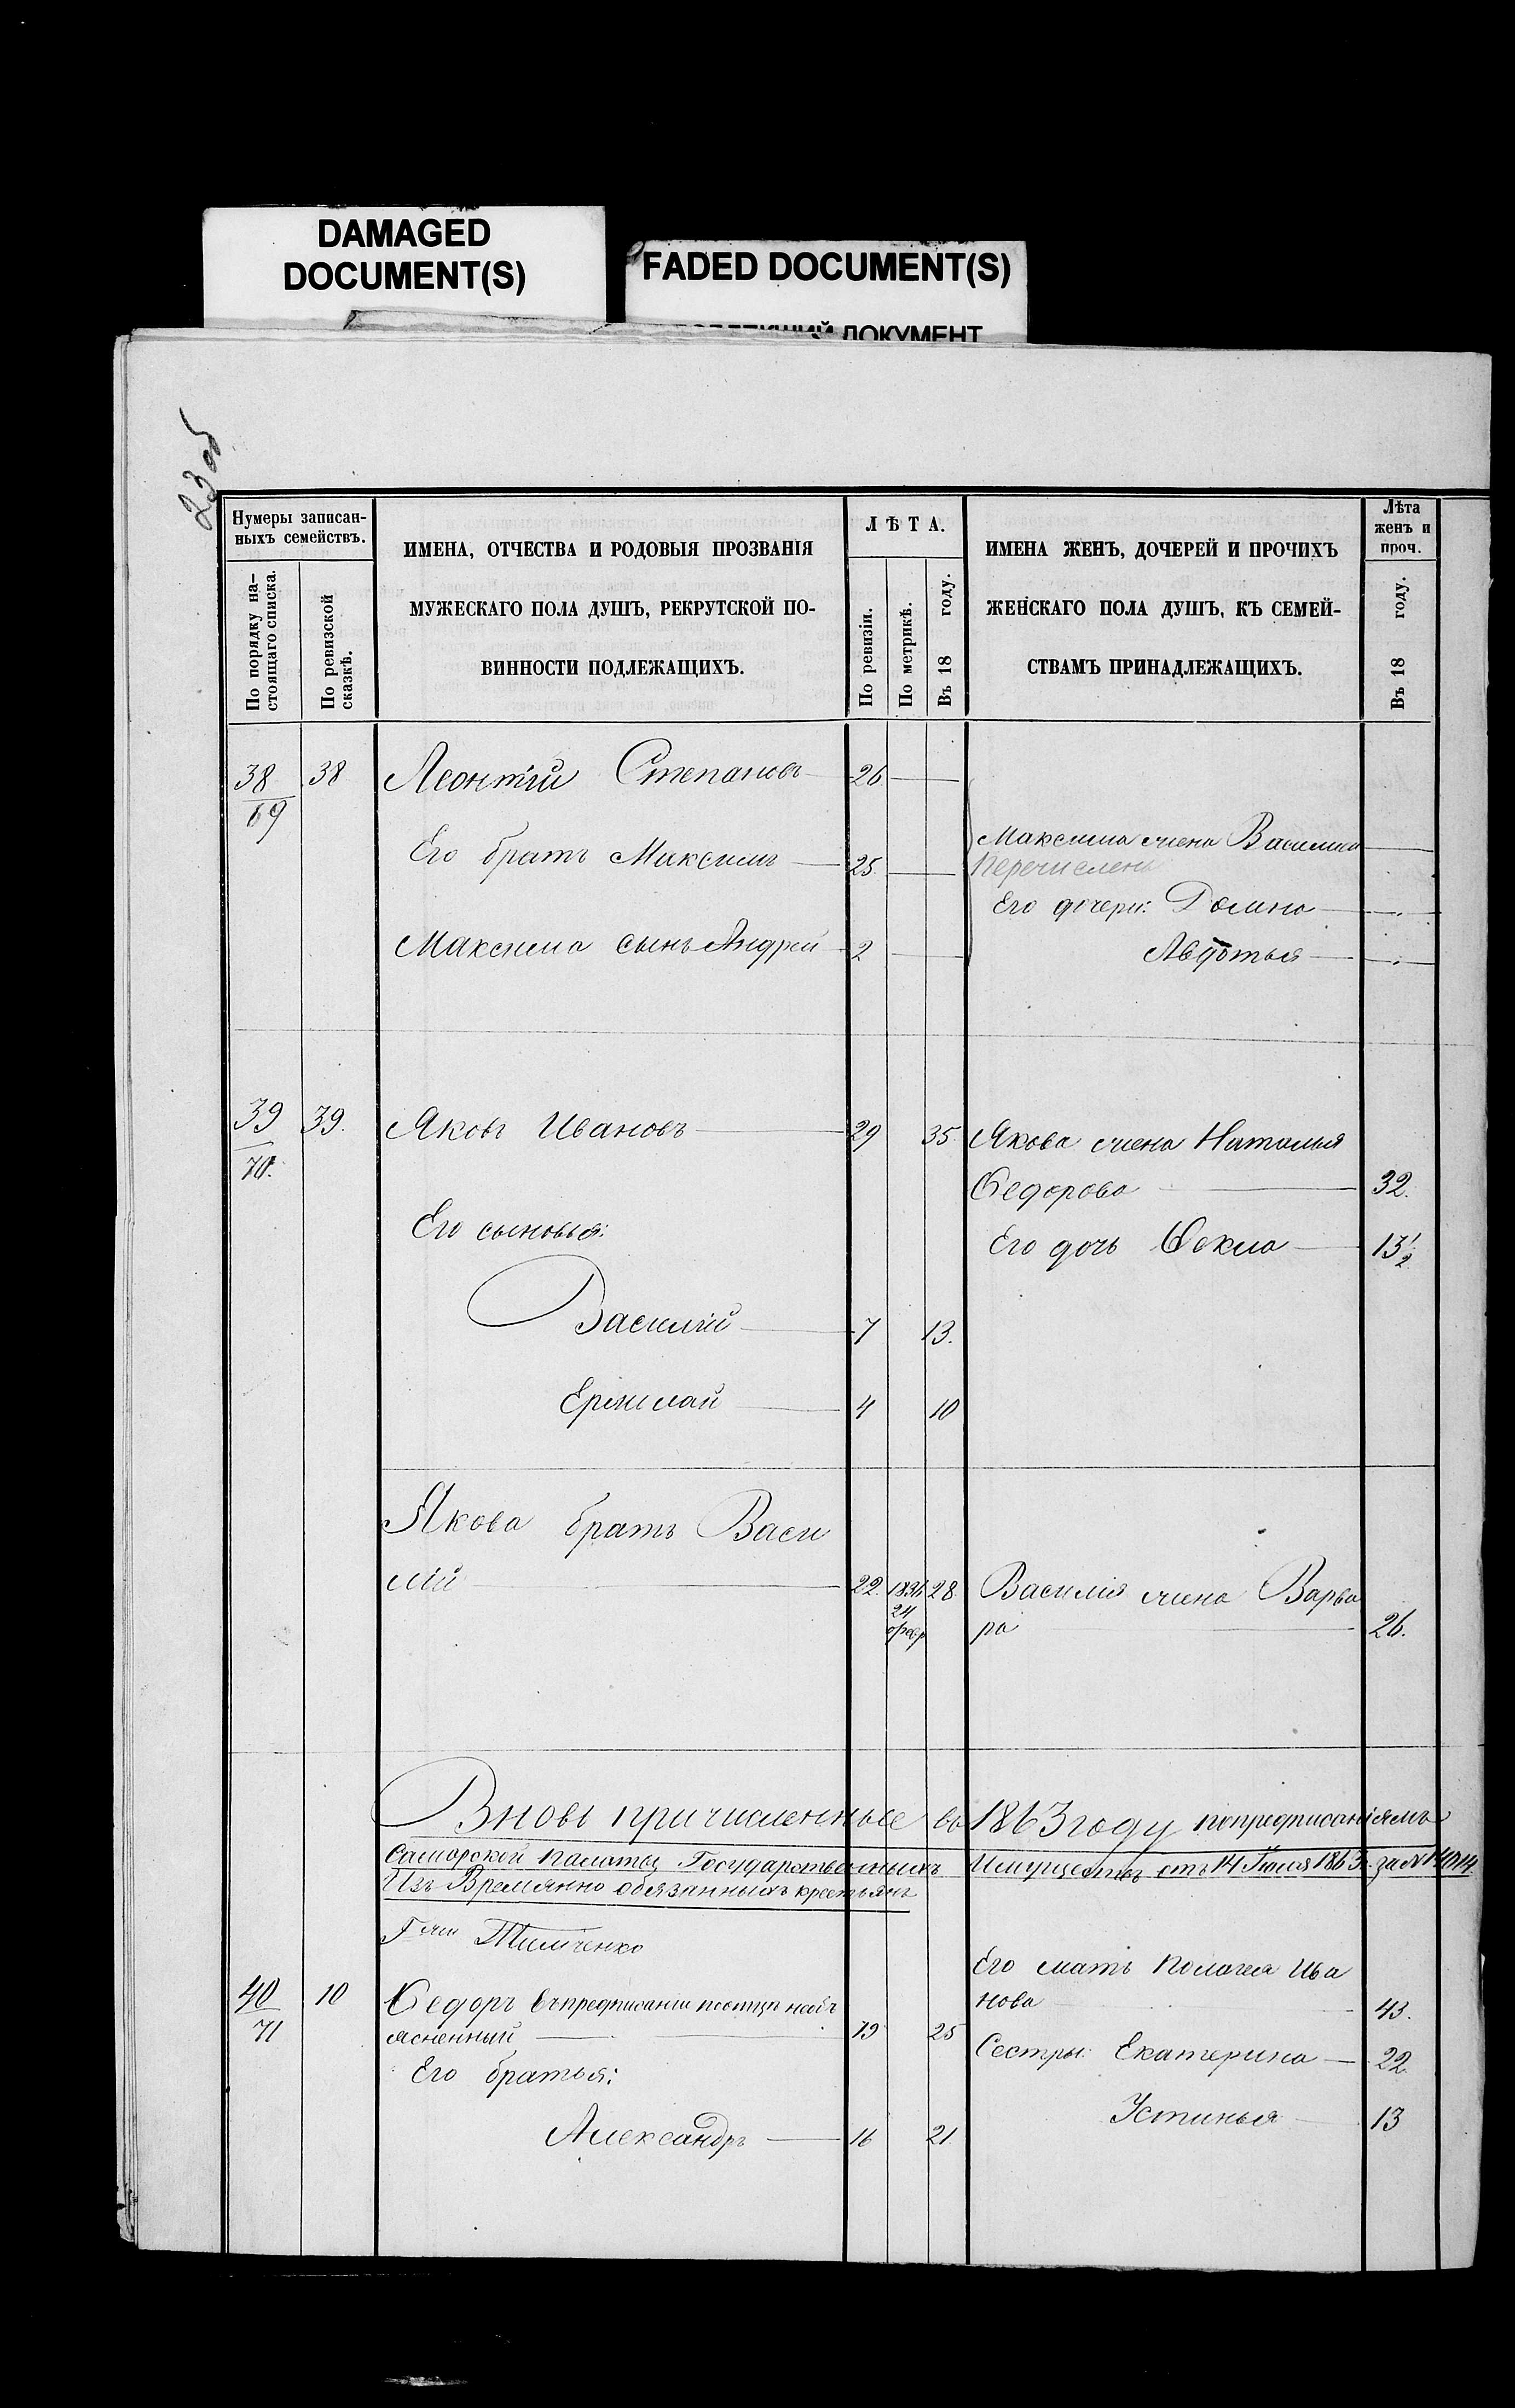 DAMAGED
DOCUMENT(S)
FADED DOCUMENT(S)
ДОКУМЕНТ
23 об
Нумеры записан-
ныхъ семействъ.
По порядку на-
стоящаго списка.
По ревизской
сказкѣ.
ИМЕНА, ОТЧЕСТВА И РОДОВЫЯ ПРОЗВАНІЯ
МУЖЕСКАГО ПОЛА ДУШЪ, РЕКРУТСКОЙ ПО-
ВИННОСТИ ПОДЛЕЖАЩИХЪ.
ЛѢТА.
По ревизіи.
По метрикѣ.
Въ 18 году.
ИМЕНА ЖЕНЪ, ДОЧЕРЕЙ И ПРОЧИХЪ
ЖЕНСКАГО ПОЛА ДУШЪ, КЪ СЕМЕЙ-
СТВАМЪ ПРИНАДЛЕЖАЩИХЪ.
Лѣта
женъ и
проч.
Въ 18 году.
38 38 Леонтій Степановъ 26
69
Его братъ Максимъ 25
Максима жена Василиса
Перечислены
Его дочери: Домна
Максима сынъ Андрей 2
Авдотья
39 39. Яковъ Ивановъ 29 35 Якова жена Наталья
70.
Федорова 32.
Его сыновья:
Его дочь Фекла 13 1/2
Василій 7 13.
Ермолай 4 10
Якова братъ Васи
лій 22. 1834 28 Василія жена Варва
24
февр
ра 26.
Вновь причисленные въ 1863 году попредписаніямъ
Самарской палаты Государственныхъ Имуществъ отъ 14 Іюля 1863 г. за N 14014
Изъ Временно обязанныхъ крестьянъ
Г-жи Тимченко
Его мать Полагея Ива
нова 43.
40 10 Федоръ въ предписаніи
71
19 25
Сестры: Екатерина 22
Его братья:
Устинья 13
Александръ 16 21